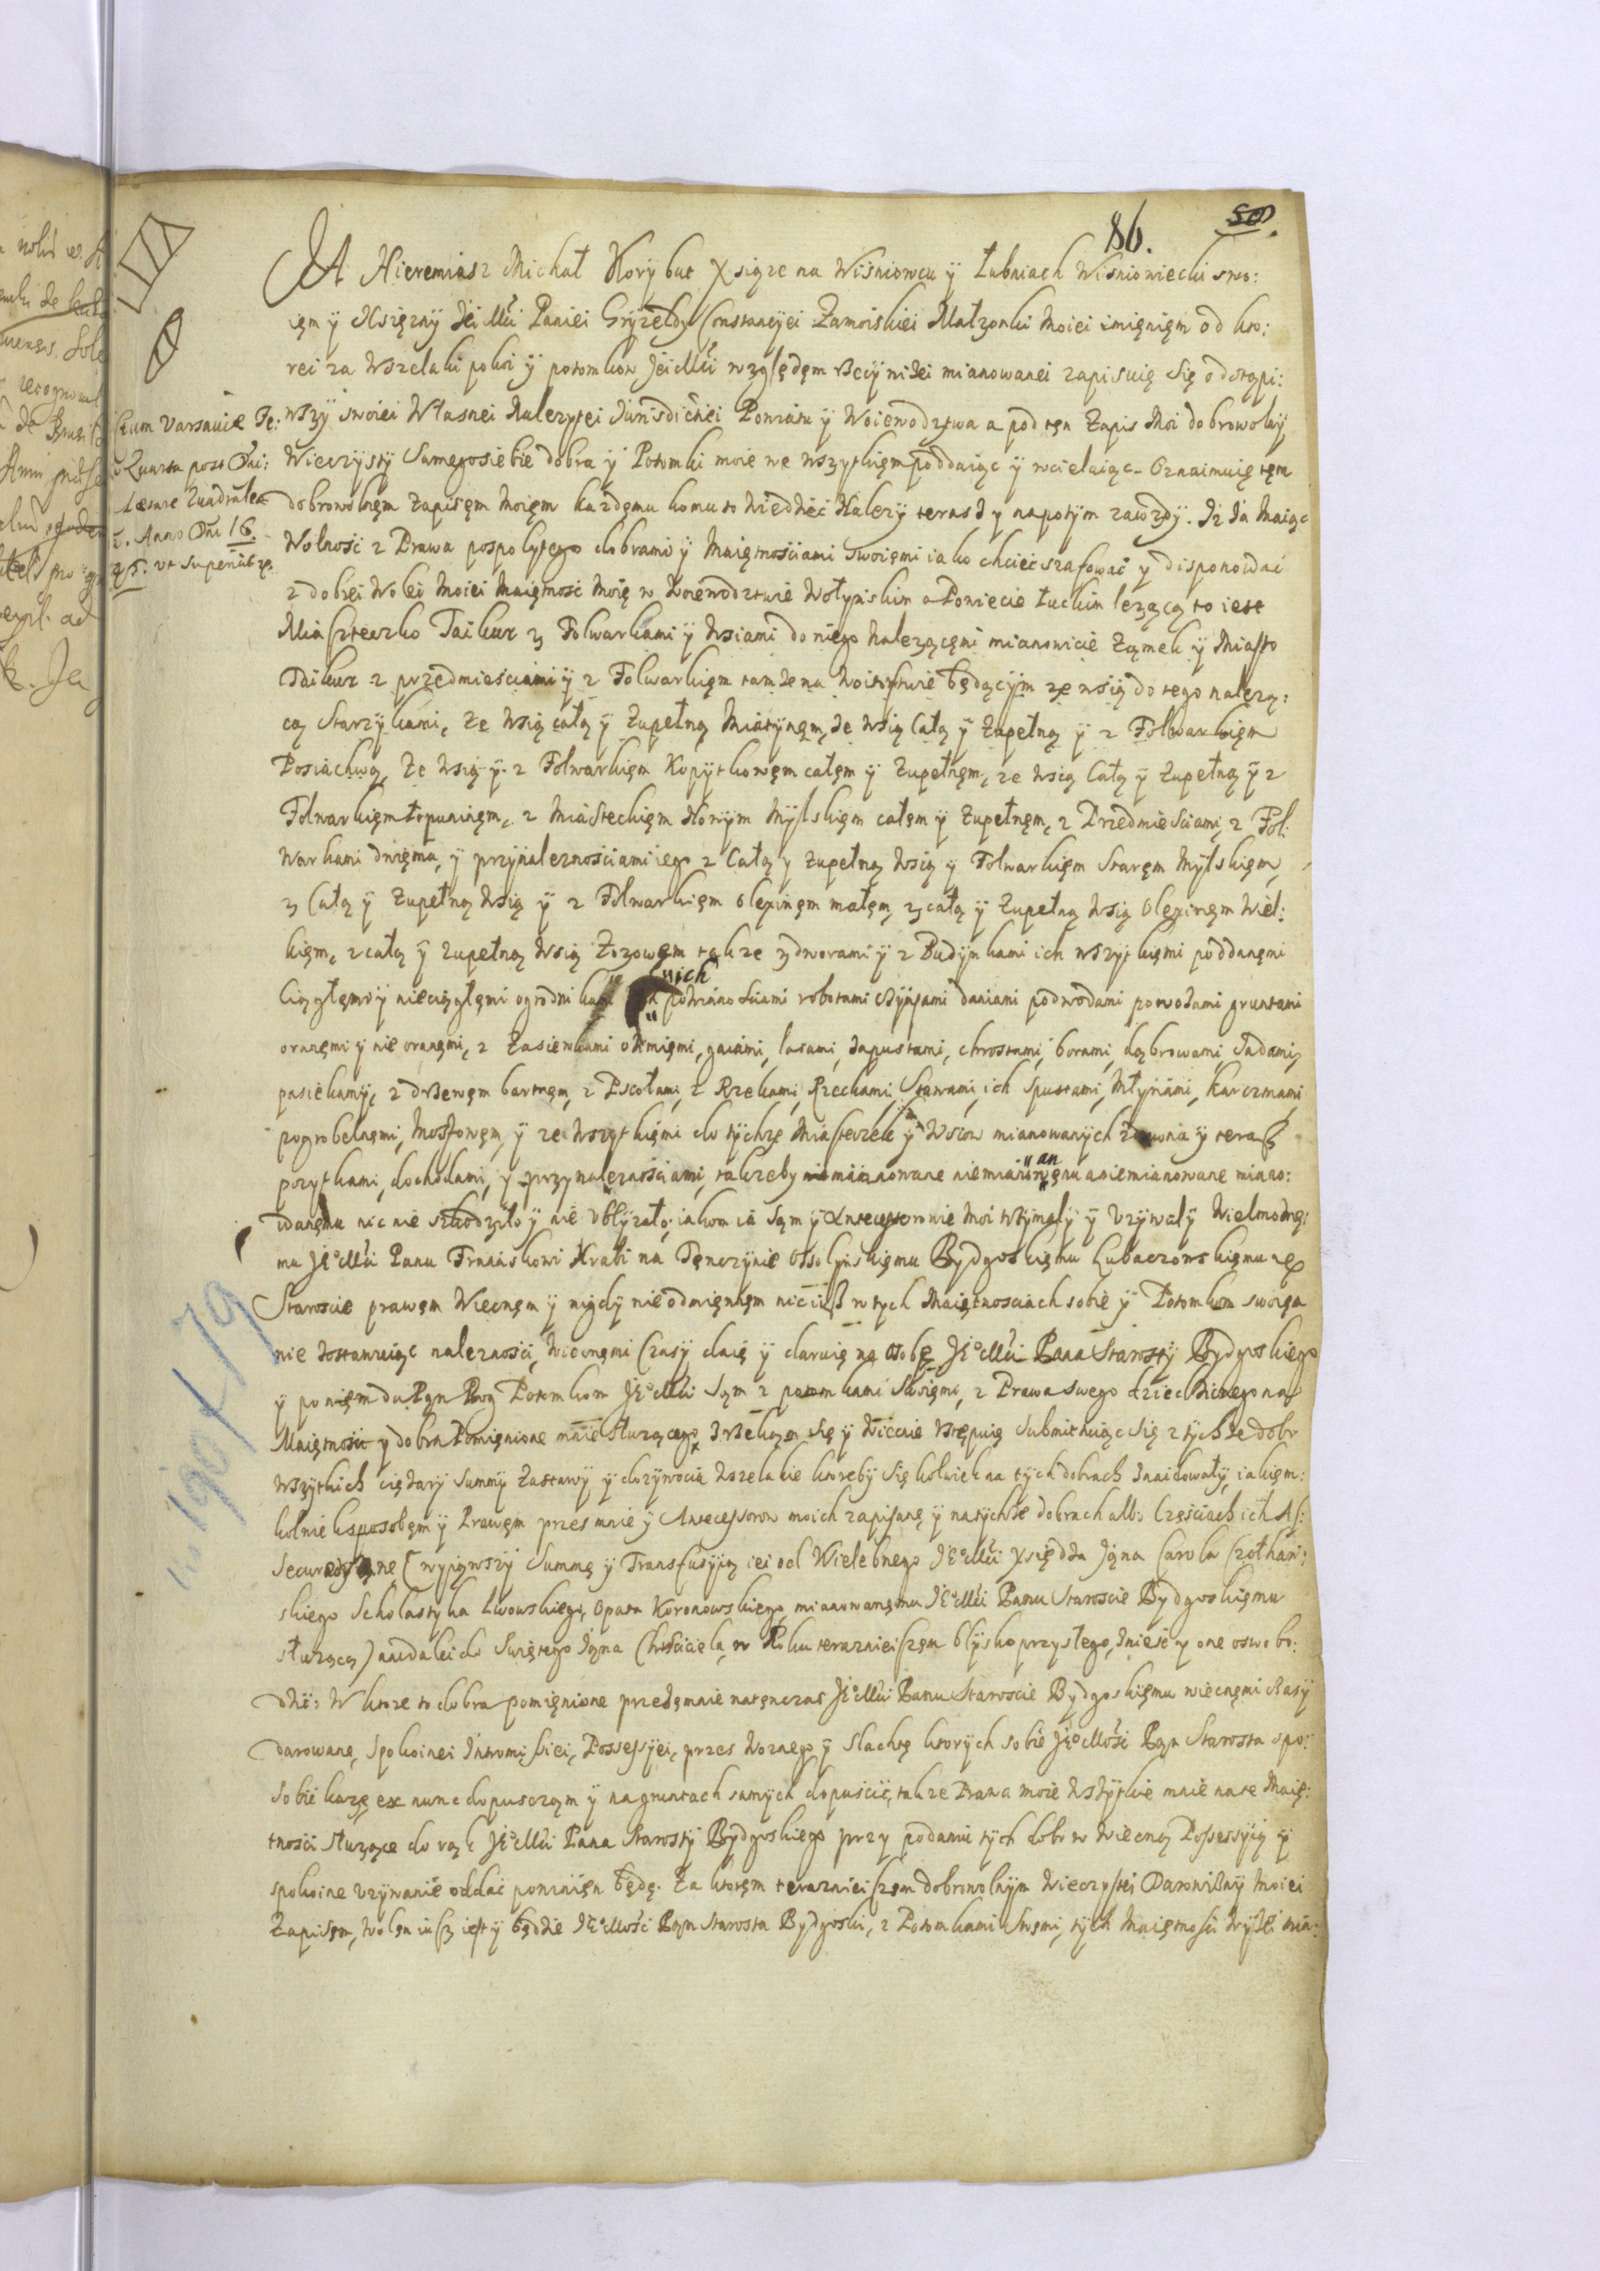 86.
50.
JA Hieremiasz Michał Korybut Xsiąze na Wisniowcu ÿ Łubniach Wisniowiecki swo:
ięm ÿ Xsięzny Jei Mści Paniei Gryzeldy Constancyei Zamoiskiei Małzonki Moiei imięnięm od kto:
rei za wszelaki pokoi ÿ potomkow Jei Mści względęm rzeczÿ nizei mianowanei zapisuię się odstąpi:
wszÿ swoiei Własnei Nalezytei Jurisdictiei Powiatu ÿ Woiewodztwa a pod tęn Zapis Moi dobrowolnÿ
Wieczystÿ Samego siebie dobra ÿ Potomki moie we wszytkięm poddaiąc ÿ wcielaiąc. Oznaimuię tęm
dobrowolnęm zapisęm moięm kazdęmu komu to wiedzieć Nalezÿ teraz y napotÿm zawzdÿ. Iz Ja Maiąc
Wolność z Prawa pospolytego dobrami ÿ Maiętnościami swoięmi iako chcieć szafować y disponować
z dobrei Wolei Moiei Maiętność Moię w Woiewodztwie Wołyńskim a Powiecie Łuckim lezącą to iest
Miasteczko Taikur z Folwarkami ÿ Wsiami do niego Nalezącęmi mianowicie Zamek ÿ Miasto
Taikur z przedmiesciami ÿ z Folwarkięm tamze na Woitostwie będącÿm ze wsią do tego nalezą:
cą Starzÿkami, Ze Wsią całą ÿ Zupełną Miatÿnęm, ze Wsią Całą ÿ Zupełną ÿ z Folwarkięm
Posiachwą, Ze Wsią ÿ z Folwarkięm Kopÿtkowęm całęm ÿ Zupełnęm, ze wsią Całą ÿ Zupełną ÿ z
Folwarkięm Łopuninęm, z Miasteckięm Nowÿm Mÿlskięm całęm ÿ Zupełnęm, z Przedmiesciami, z Fol:
warkami dwięma, ÿ przÿnaleznosciami iego z Całą y Zupełną Wsią y Folwarkięm Staręm Mÿlskięm,
z Całą ÿ Zupełną Wsią ÿ z Folwarkięm Olexinęm małęm, z całą ÿ Zupełną Wsią Olexinęm Wiel:
kięm, z całą ÿ zupełną Wsią Zozowęm także z dworami ÿ z Budÿnkami ich wszytkięmi poddanęmi
Ciągłęmi ÿ nieciągłęmi ogrodnikami nich powinnościami robotami czÿnszami daniami podwodami powozami gruntami
oranęmi ÿ nie oranęmi, z Zasiewkami ozimięmi, gaiami, lasami, zapustami, chrostami, borami, dąbrowami Sadami,
pasiekamÿ, z drzewęm bartnęm, z Pscołami, z Rzekami, Rzeckami, Stawami, ich Spustami, Młÿnami, karczmami,
pogrobelnęmi, Mostowęm, ÿ ze wszytkięmi do tÿchze Miasteczek ÿ Wsiow mianowanych zdawna ÿ teraß
pozytkami, dochodami, y przynaleznościami, takzeby mianowane niemianowanęmu a niemianowane miano:
wanęmu nic nie szkodziło ÿ nie ublÿzało, iakom ia sąm ÿ Antecessorowie Moi trzÿmalÿ ÿ Uzÿwalÿ Wielmoznę:
mu JEo Mści Panu Franciskowi Hrabi na Tęnczÿnie Ossolÿnskięmu Bÿdgoskięmu Lubaczowskięmu
Staroscie prawęm Wiecnęm ÿ nigdÿ nie odmięnnęm nic iuß w tych Maiętnosciach sobie ÿ Potomkom swoięm
nie zostawuiąc nalezności, Wiecnęmi Czasÿ daię ÿ daruię na Osobę JEo Mści Pana Starostÿ Bydgoskiego
ÿ po nięm da Pąn Bog Potomkom JEo Mści Sąm z potomkami Swoięmi, z Prawa swego dziedzicnego na
Maiętność y dobra Pomięnione mnie słuzącego Zrzekąm się ÿ Wiecnie Ustępuię Submituiąc się z tÿchze dobr
wszÿtkich ciężarÿ Summÿ Zastawÿ ÿ dozÿwocia Wszelakie ktorebÿ się kolwiek na tÿch dobrach Znaidowałÿ, iakięm:
kolwiek sposobęm ÿ Prawęm przes mnie ÿ Antecessorow moich zapisanę ÿ na tÿchze dobrach albo Częściach ich As:
securowane (wyiąwszÿ Summę ÿ Transfusÿią iei od Wielebnego JEo Mści Xsiędza Jąna Carola Czołhań:
skiego Scholastyka Lwowskiego, Opata Koronowskiego, mianowanęmu JEo Mści Panu Staroscie Bydgoskięmu
słuzącą) nadalei do Swiętego Jąna Chrzciciela, w Roku teraznieiszęm blÿsko przyszłego, Znieść y one oswobo:
dzić: W ktore to dobra pomięnione przezęmnie natęnczas JEo Mści Panu Staroscie Bydgoskięmu wiecnęmi czasÿ
darowanę, Spokoinei Intromissiei, Possessÿei, przez Woznego ÿ Slachtę ktorÿch sobie JEo Mość Pąn Starosta spo:
sobie karzę ex nunc dopuscząm ÿ na gruntach samÿch dopuścić, takze Prawa moie Wszÿtkie mnie na te Maię:
tnosći słuzące do rąk JEo Mści Pana Starostÿ Bydgoskiego przy podaniu tÿch dobr w Wiecną Possessÿią ÿ
spokoine uzÿwanie oddać powinięn będę. Za ktoręm teraznieiszęm dobrowolnÿm Wieczÿstei Darowiznÿ Moiei
Zapisęm, Wolęn iusz iest ÿ będzie JEo Mość Pąn Starosta Bydgoski, z Potomkami Swęmi, tÿch Maiętności Wÿzei mia:
tum Varsaviae Fe:
Quarta post Dni:
Laetare Quadrage
Anno Dni 16.
ut supra